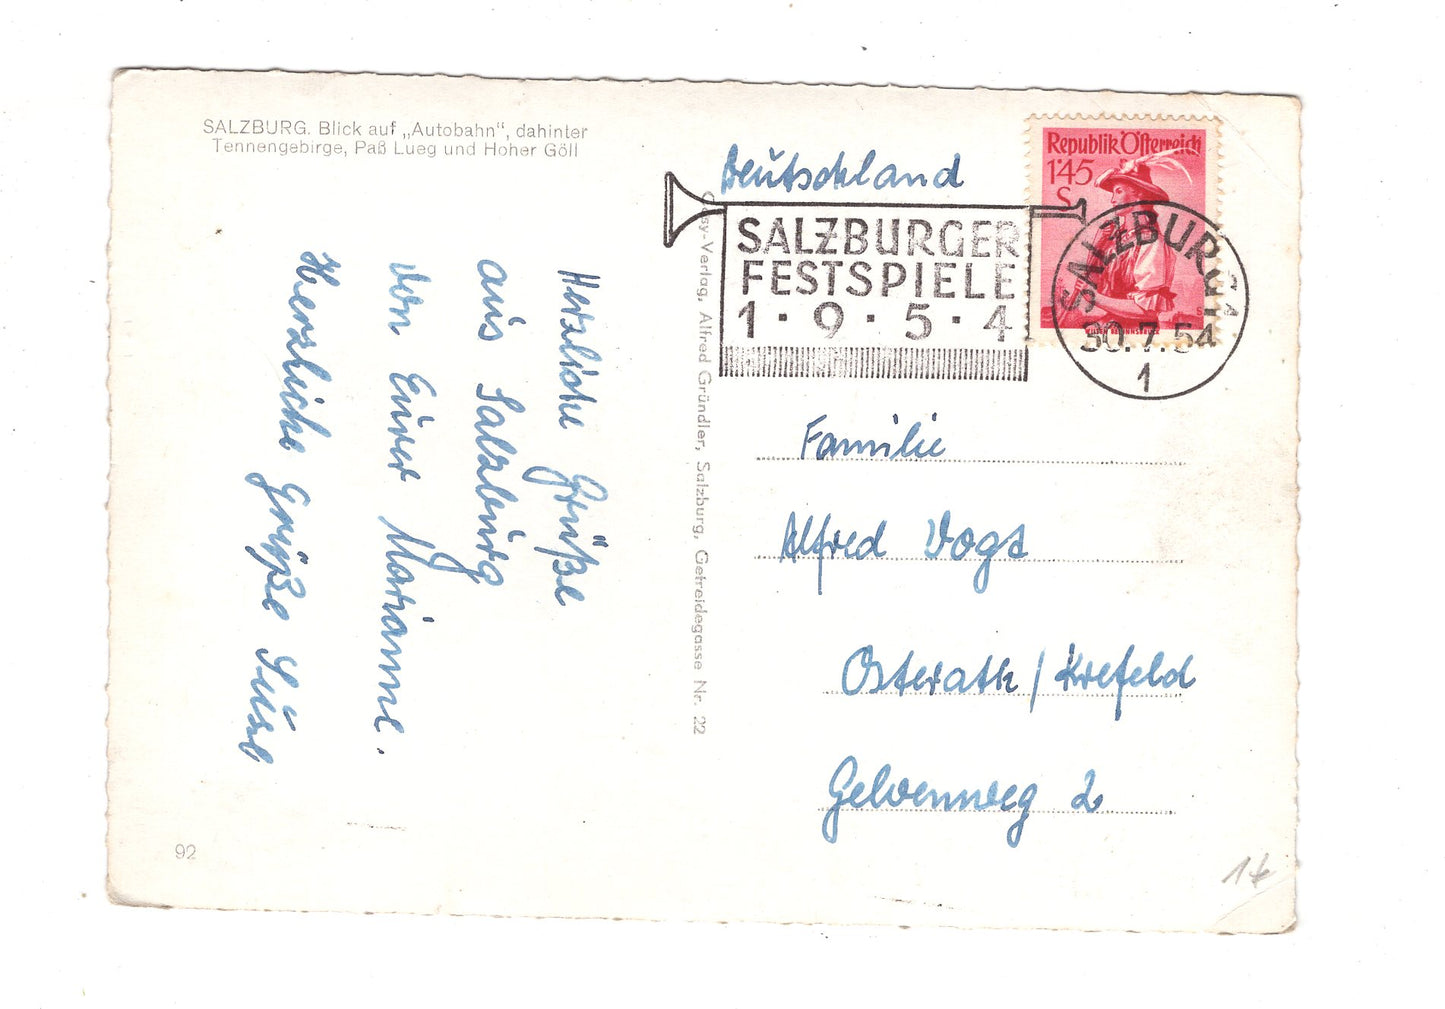 SALZBURG. Blick auf „Autobahn“, dahinter
Tennengebirge, Paß Lueg und Hoher Göll
Herzliche Grüße
aus Salzburg
von Eurer Marianne.
Herzliche Grüße Suse
92
Cosy-Verlag, Alfred Gründler, Salzburg, Getreidegasse Nr. 22
Deutschland
SALZBURGER
FESTSPIELE
1·9·5·4
Republik Österreich
1·45
S
SALZBURG 1
30.7.54
1
Familie
Alfred Vogt
Osterath/Krefeld
Gelvennweg 2